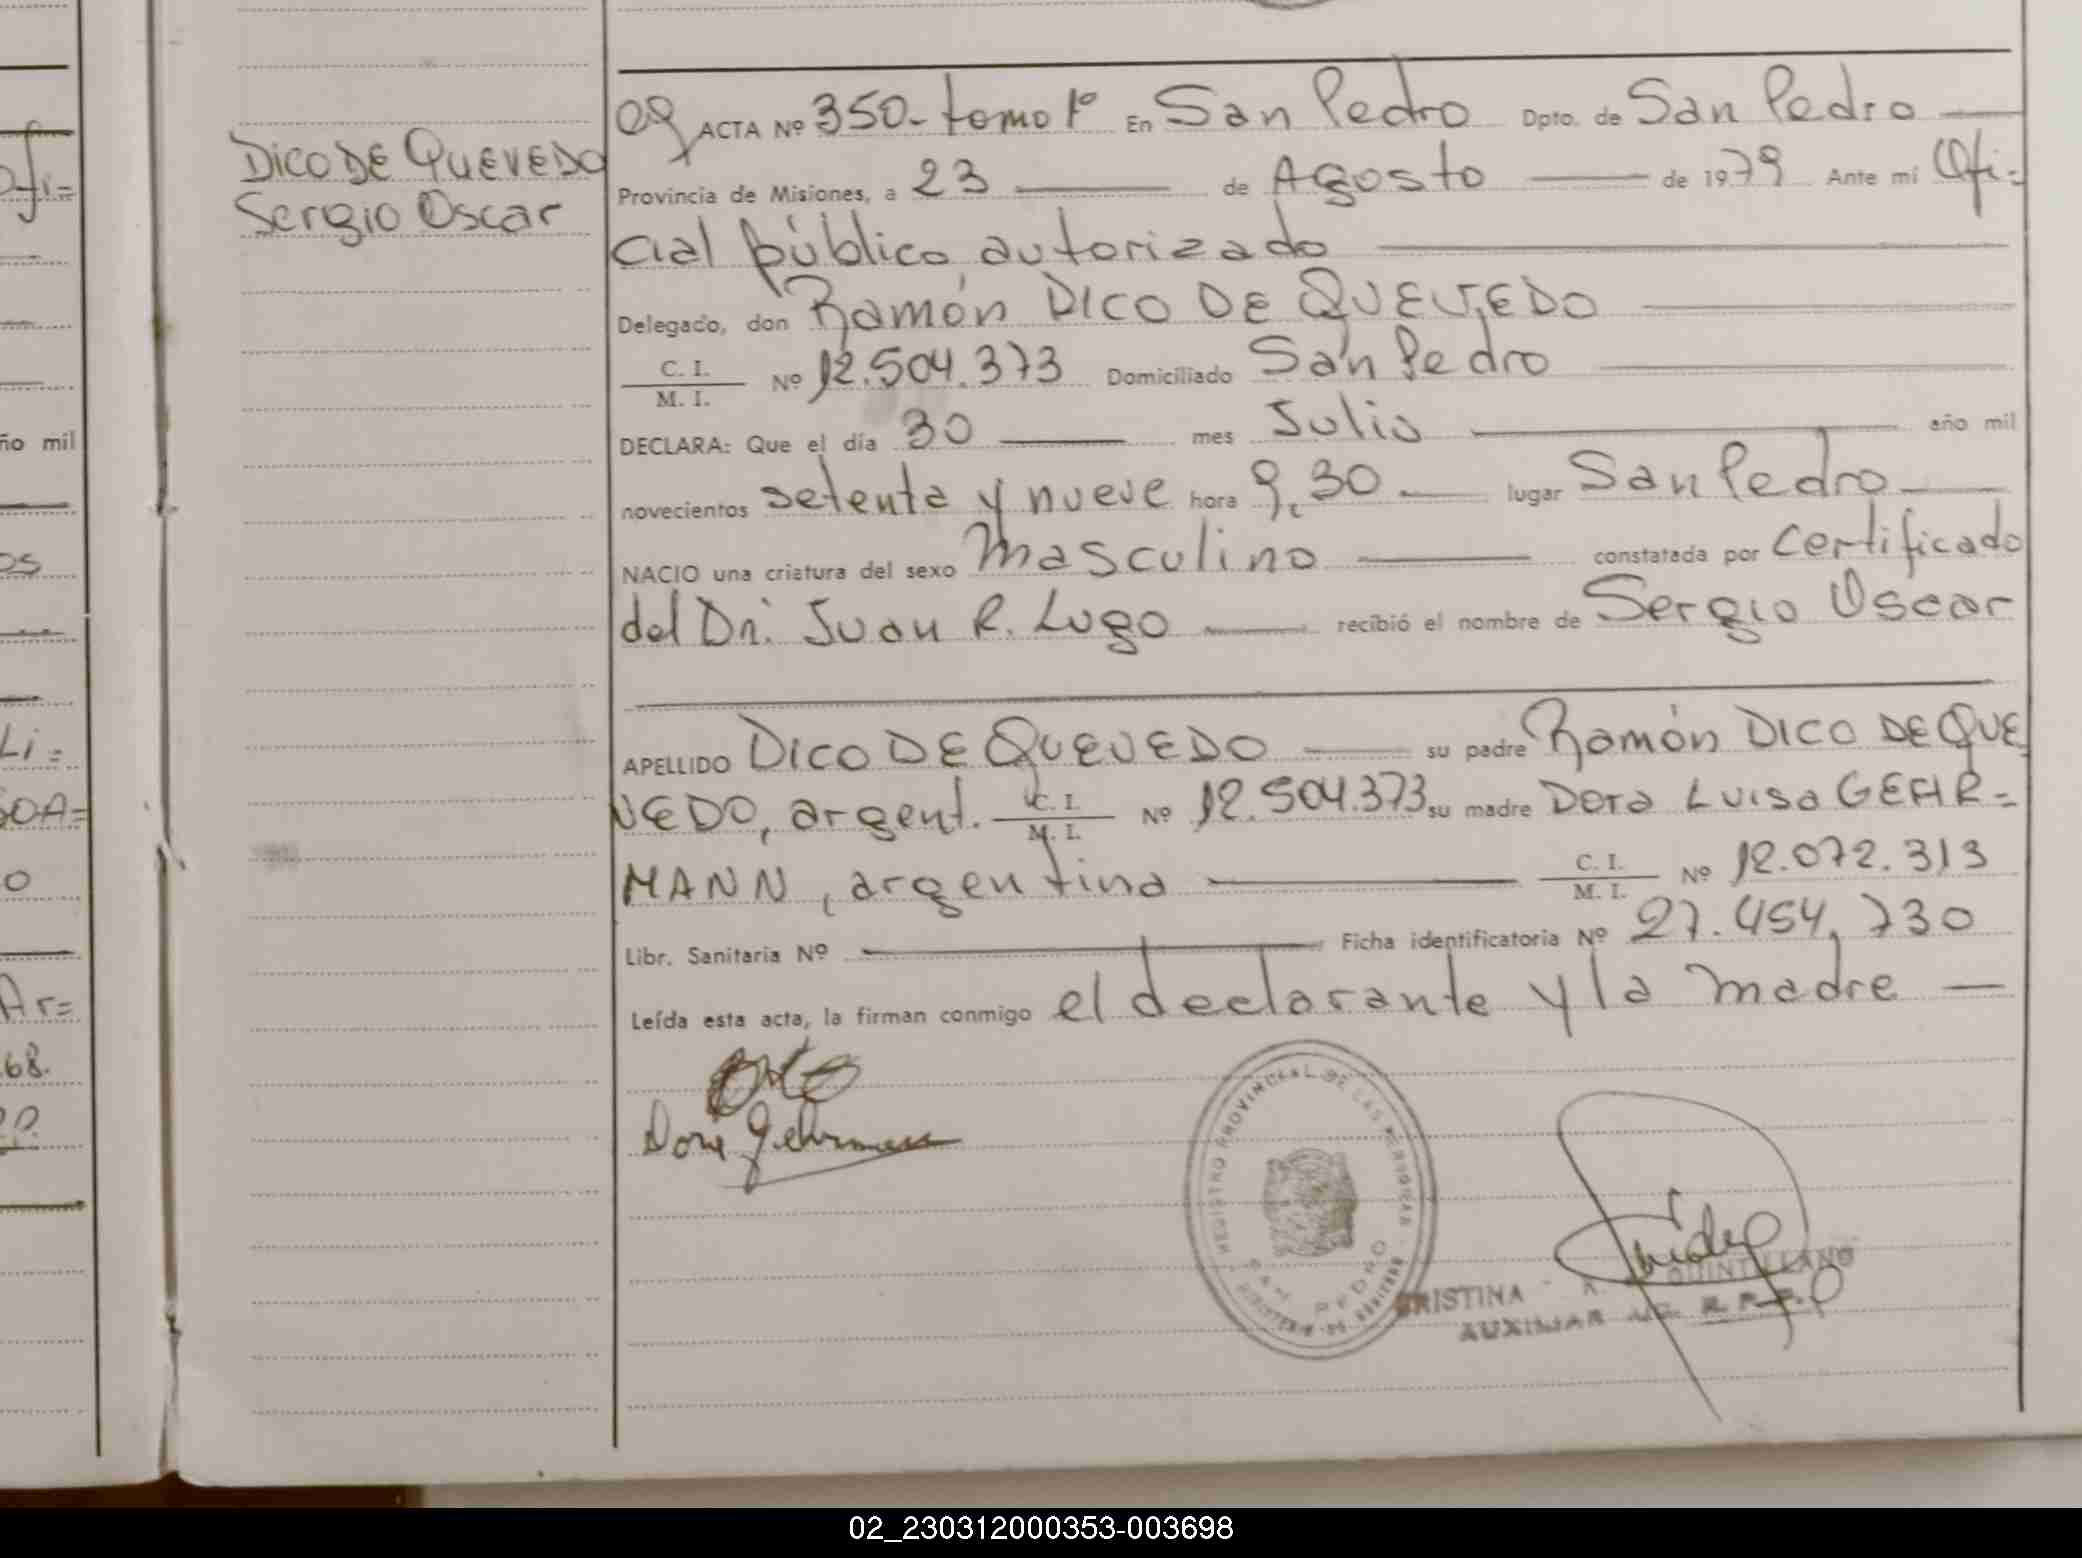 DICO DE QUEVEDO
Sergio Oscar
ACTA Nº 350- tomo 1º En San Pedro Dpto. de San Pedro
Provincia de Misiones, a 23 de Agosto de 1979 Ante mi Ofi=
cial público autorizado
Delegado, don Ramón DICO DE QUEVEDO
C. I.
M. I. Nº 12.504.373 Domiciliado San Pedro
DECLARA: Que el día 30 mes Julio año mil
novecientos setenta y nueve hora 9,30 lugar San Pedro
NACIO una criatura del sexo Masculino constatada por Certificado
del Dr. Juan R. Lugo recibió el nombre de Sergio Oscar
APELLIDO DICO DE QUEVEDO su padre Ramón DICO DE QUE
VEDO, argent. C. I.
M. I. Nº 12.504.373 su madre Dora Luisa GEHR=
MANN, argentina C. I.
M. I. Nº 12.072.313
Libr. Sanitaria Nº Ficha identificatoria Nº 27.454.730
Leída esta acta, la firman conmigo el declarante y la madre
Dora Gehrmann
REGISTRO PROVINCIAL DE LAS PERSONAS
SAN PEDRO
CRISTINA QUINTILLANO
AUXILIAR
ño mil
os
Li=
SOA=
o
Ar=
68.
02_230312000353-003698